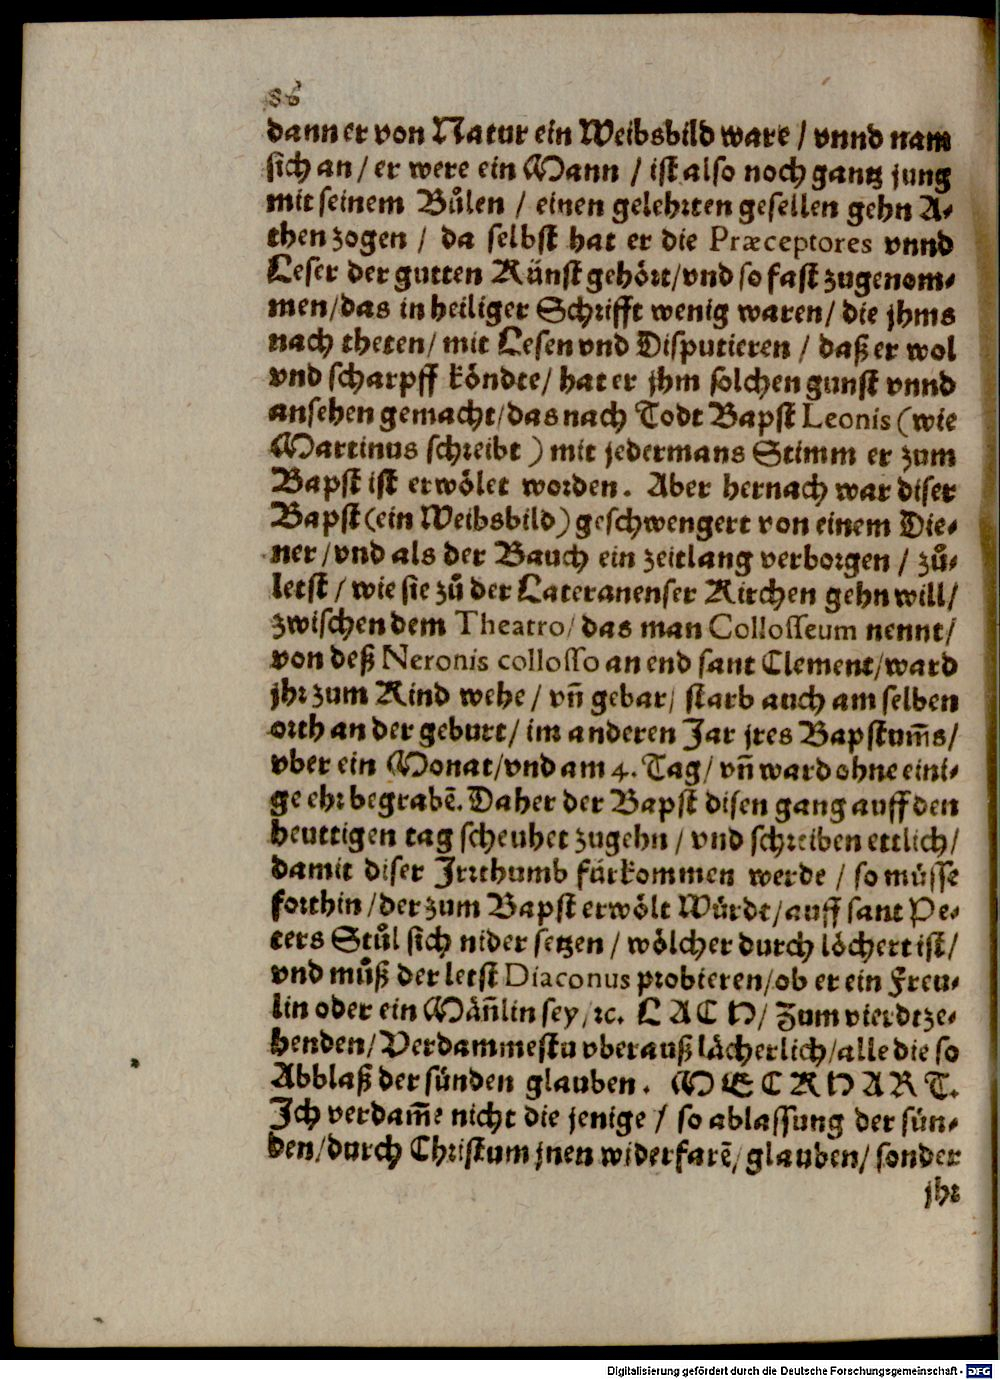 86
dann er von Natur ein Weibsbild ware / vnnd nam
sich an / er were ein Mann / ist also noch gantz jung
mit seinem Bůlen / einen gelehrten gesellen gehn A-
then zogen / da selbst hat er die Præceptores vnnd
Leser der gutten Künst gehört/vnd so fast zugenom-
men/das in heiliger Schrifft wenig waren/ die jhms
nach theten/ mit Lesen vnd Disputieren / daß er wol
vnd scharpff köndte/ hat er jhm solchen gunst vnnd
ansehen gemacht/das nach Todt Bapst Leonis (wie
Martinus schreibt ) mit jedermans Stimm er zum
Bapst ist erwölet worden. Aber hernach war diser
Bapst (ein Weibsbild) geschwengert von einem Die-
ner/vnd als der Bauch ein zeitlang verborgen / zů-
letst / wie sie zů der Lateranenser Kirchen gehn will/
zwischen dem Theatro/ das man Collosseum nennt/
von deß Neronis collosso an end sant Clement/ward
jhr zum Kind wehe / vñ gebar/ starb auch am selben
orth an der geburt/ im anderen Jar jres Bapstum̃s/
vber ein Monat/vnd am 4. Tag/ vñ ward ohne eini-
ge ehr begrabẽ. Daher der Bapst disen gang auff den
heuttigen tag scheuhet zugehn / vnd schreiben ettlich/
damit diser Jrrthumb fürkommen werde / so müsse
forthin /der zum Bapst erwölt Würdt/auff sant Pe-
ters Stůl sich nider setzen / wölcher durch löchert ist/
vnd můß der letst Diaconus probieren/ob er ein Freu-
lin oder ein Mäñlin sey/ꝛc. L A C H/ Zum vierdtze-
henden/Verdammestu vberauß lächerlich/alle die so
Abblaß der sünden glauben. M E C K H A R T.
Jch verdam̃e nicht die jenige / so ablassung der sün-
den/durch Christum jnen widerfarẽ/glauben/ sonder
jhr
Digitalisierung gefördert durch die Deutsche Forschungsgemeinschaft - DFG